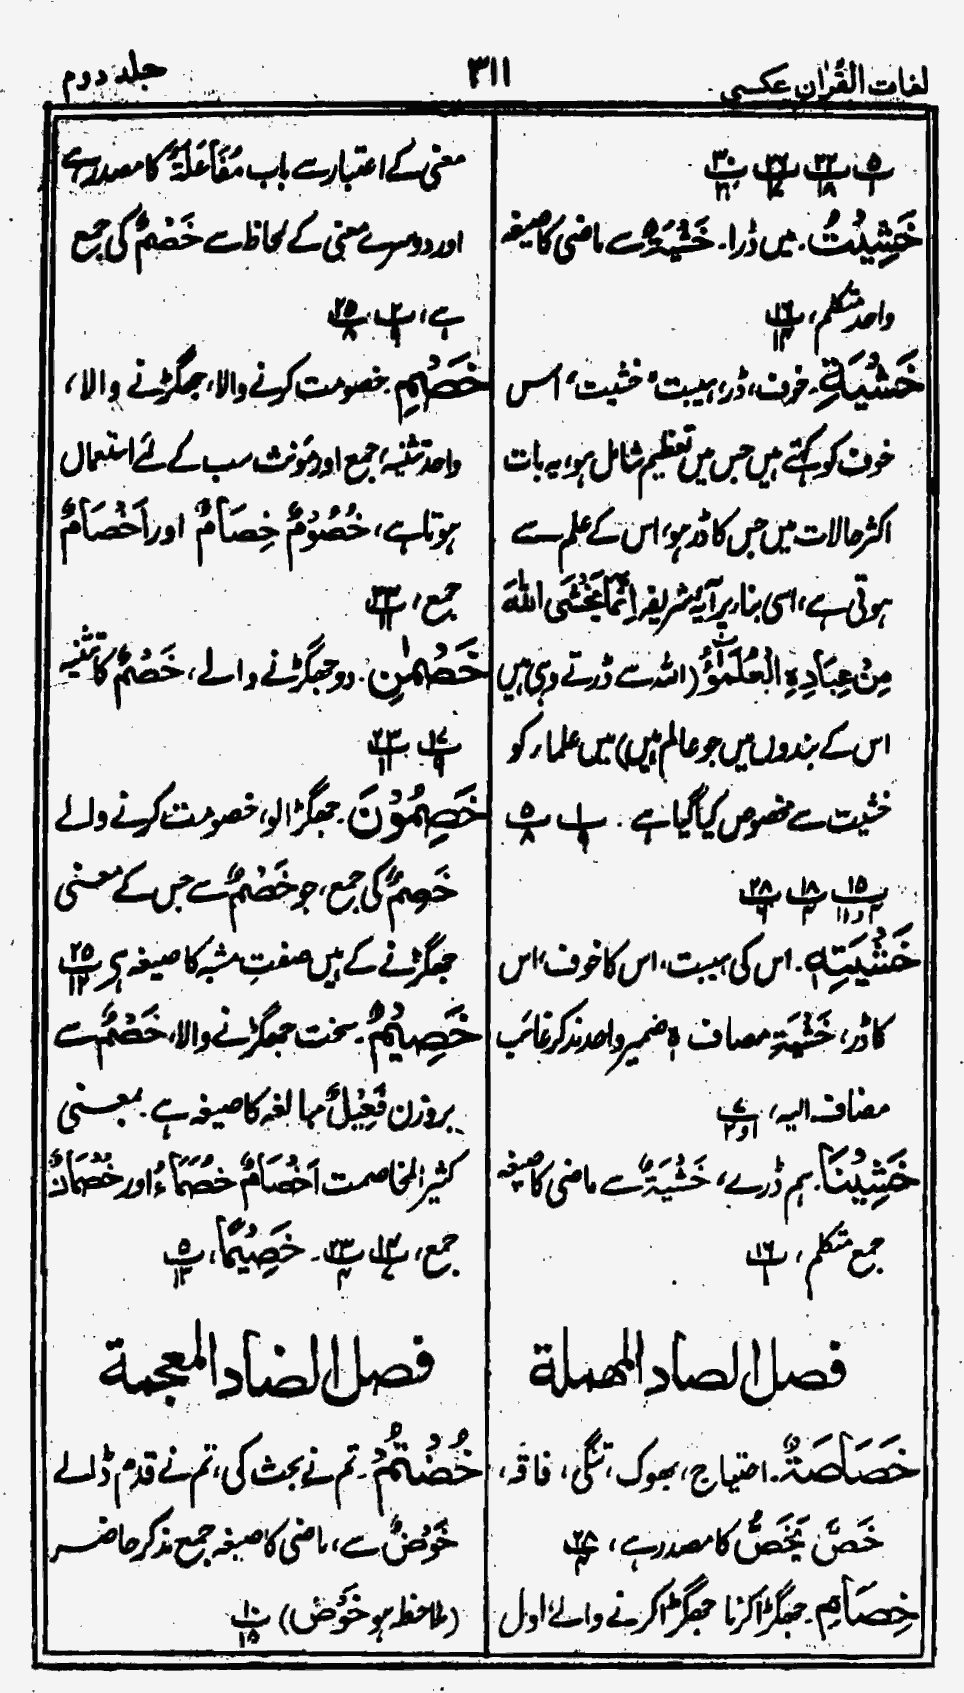 لغات القرآن عکسی
۳۱۱
جلد دوم
پ۵ پ۲۲ پ۲۷ پ۳۰
خَشِیْتُ۔ میں ڈرا۔ خَشْیَۃٌ سے ماضی کا صیغہ
واحد متکلم، پ۱۶
خَشْیَۃِ۔ خوف، ڈر، ہیبت "خشیت" اس
خوف کو کہتے ہیں جس میں تعظیم شامل ہو، یہ بات
اکثر حالات میں جس کا ڈر ہو، اس کے علم سے
ہوتی ہے، اسی بناء پر آیۂ شریفہ اِنَّمَا یَخْشَی اللّٰہَ
مِنْ عِبَادِہِ الْعُلَمٰٓؤُ (اللہ سے ڈرتے وہی ہیں
اس کے بندوں میں جو عالم ہیں) میں علماء کو
خشیت سے مخصوص کیا گیا ہے۔ پ۱ پ۵
پ۱۵ پ۱۸ پ۲۸
خَشْیَتِہٖ۔ اس کی ہیبت، اس کا خوف، اس
کا ڈر، خَشْیَۃِ مضاف ہٖ ضمیر واحد مذکر غائب
مضاف الیہ، پ
خَشِیْنَا۔ ہم ڈرے، خَشْیَۃٌ سے ماضی کا صیغہ
جمع متکلم، پ۱۶
فصل الصاد المهملة
خَصَاصَۃٌ۔ احتیاج، بھوک، تنگی، فاقہ،
خَصَّ یَخَصُّ کا مصدر ہے، پ۲۸
خِصَامِ۔ جھگڑا کرنا جھگڑا کرنے والے، اول
معنی کے اعتبار سے باب مُفَاعَلَۃٌ کا مصدر ہے
اور دوسرے معنی کے لحاظ سے خَصْمٌ کی جمع
ہے، پ۲ پ۲۵
خَصْمٍ۔ خصومت کرنے والا، جھگڑنے والا،
واحد تثنیہ، جمع اور مؤنث سب کے لئے استعمال
ہوتا ہے، خُصُوْمٌ خِصَامٌ اور اَخْصَامٌ
جمع، پ۲۳
خَصْمٰنِ۔ دو جھگڑنے والے، خَصْمٌ کا تثنیہ
پ۱۷ پ۲۳
خَصِمُوْنَ۔ جھگڑالو، خصومت کرنے والے
خَصِمٌ کی جمع، جو خَصْمٌ سے جس کے معنی
جھگڑنے کے ہیں صفتِ مشبہ کا صیغہ ہے پ۲۵
خَصِیْمٌ۔ سخت جھگڑنے والا، خَصْمٌ سے
بروزن فَعِیْلٌ مبالغہ کا صیغہ ہے۔ بمعنی
کثیر المخاصمت اَخْصَامٌ خُصَمَاءُ اور خُصْمَانٌ
جمع، پ۱۴ پ۲۳۔ خَصِیْمًا، پ۵
فصل الضاد المعجمة
خُضْتُمْ۔ تم نے بحث کی، تم نے قدم ڈالے
خَوْضٌ سے، ماضی کا صیغہ جمع مذکر حاضر
(ملاحظہ ہو خَوْض) پ۱۰